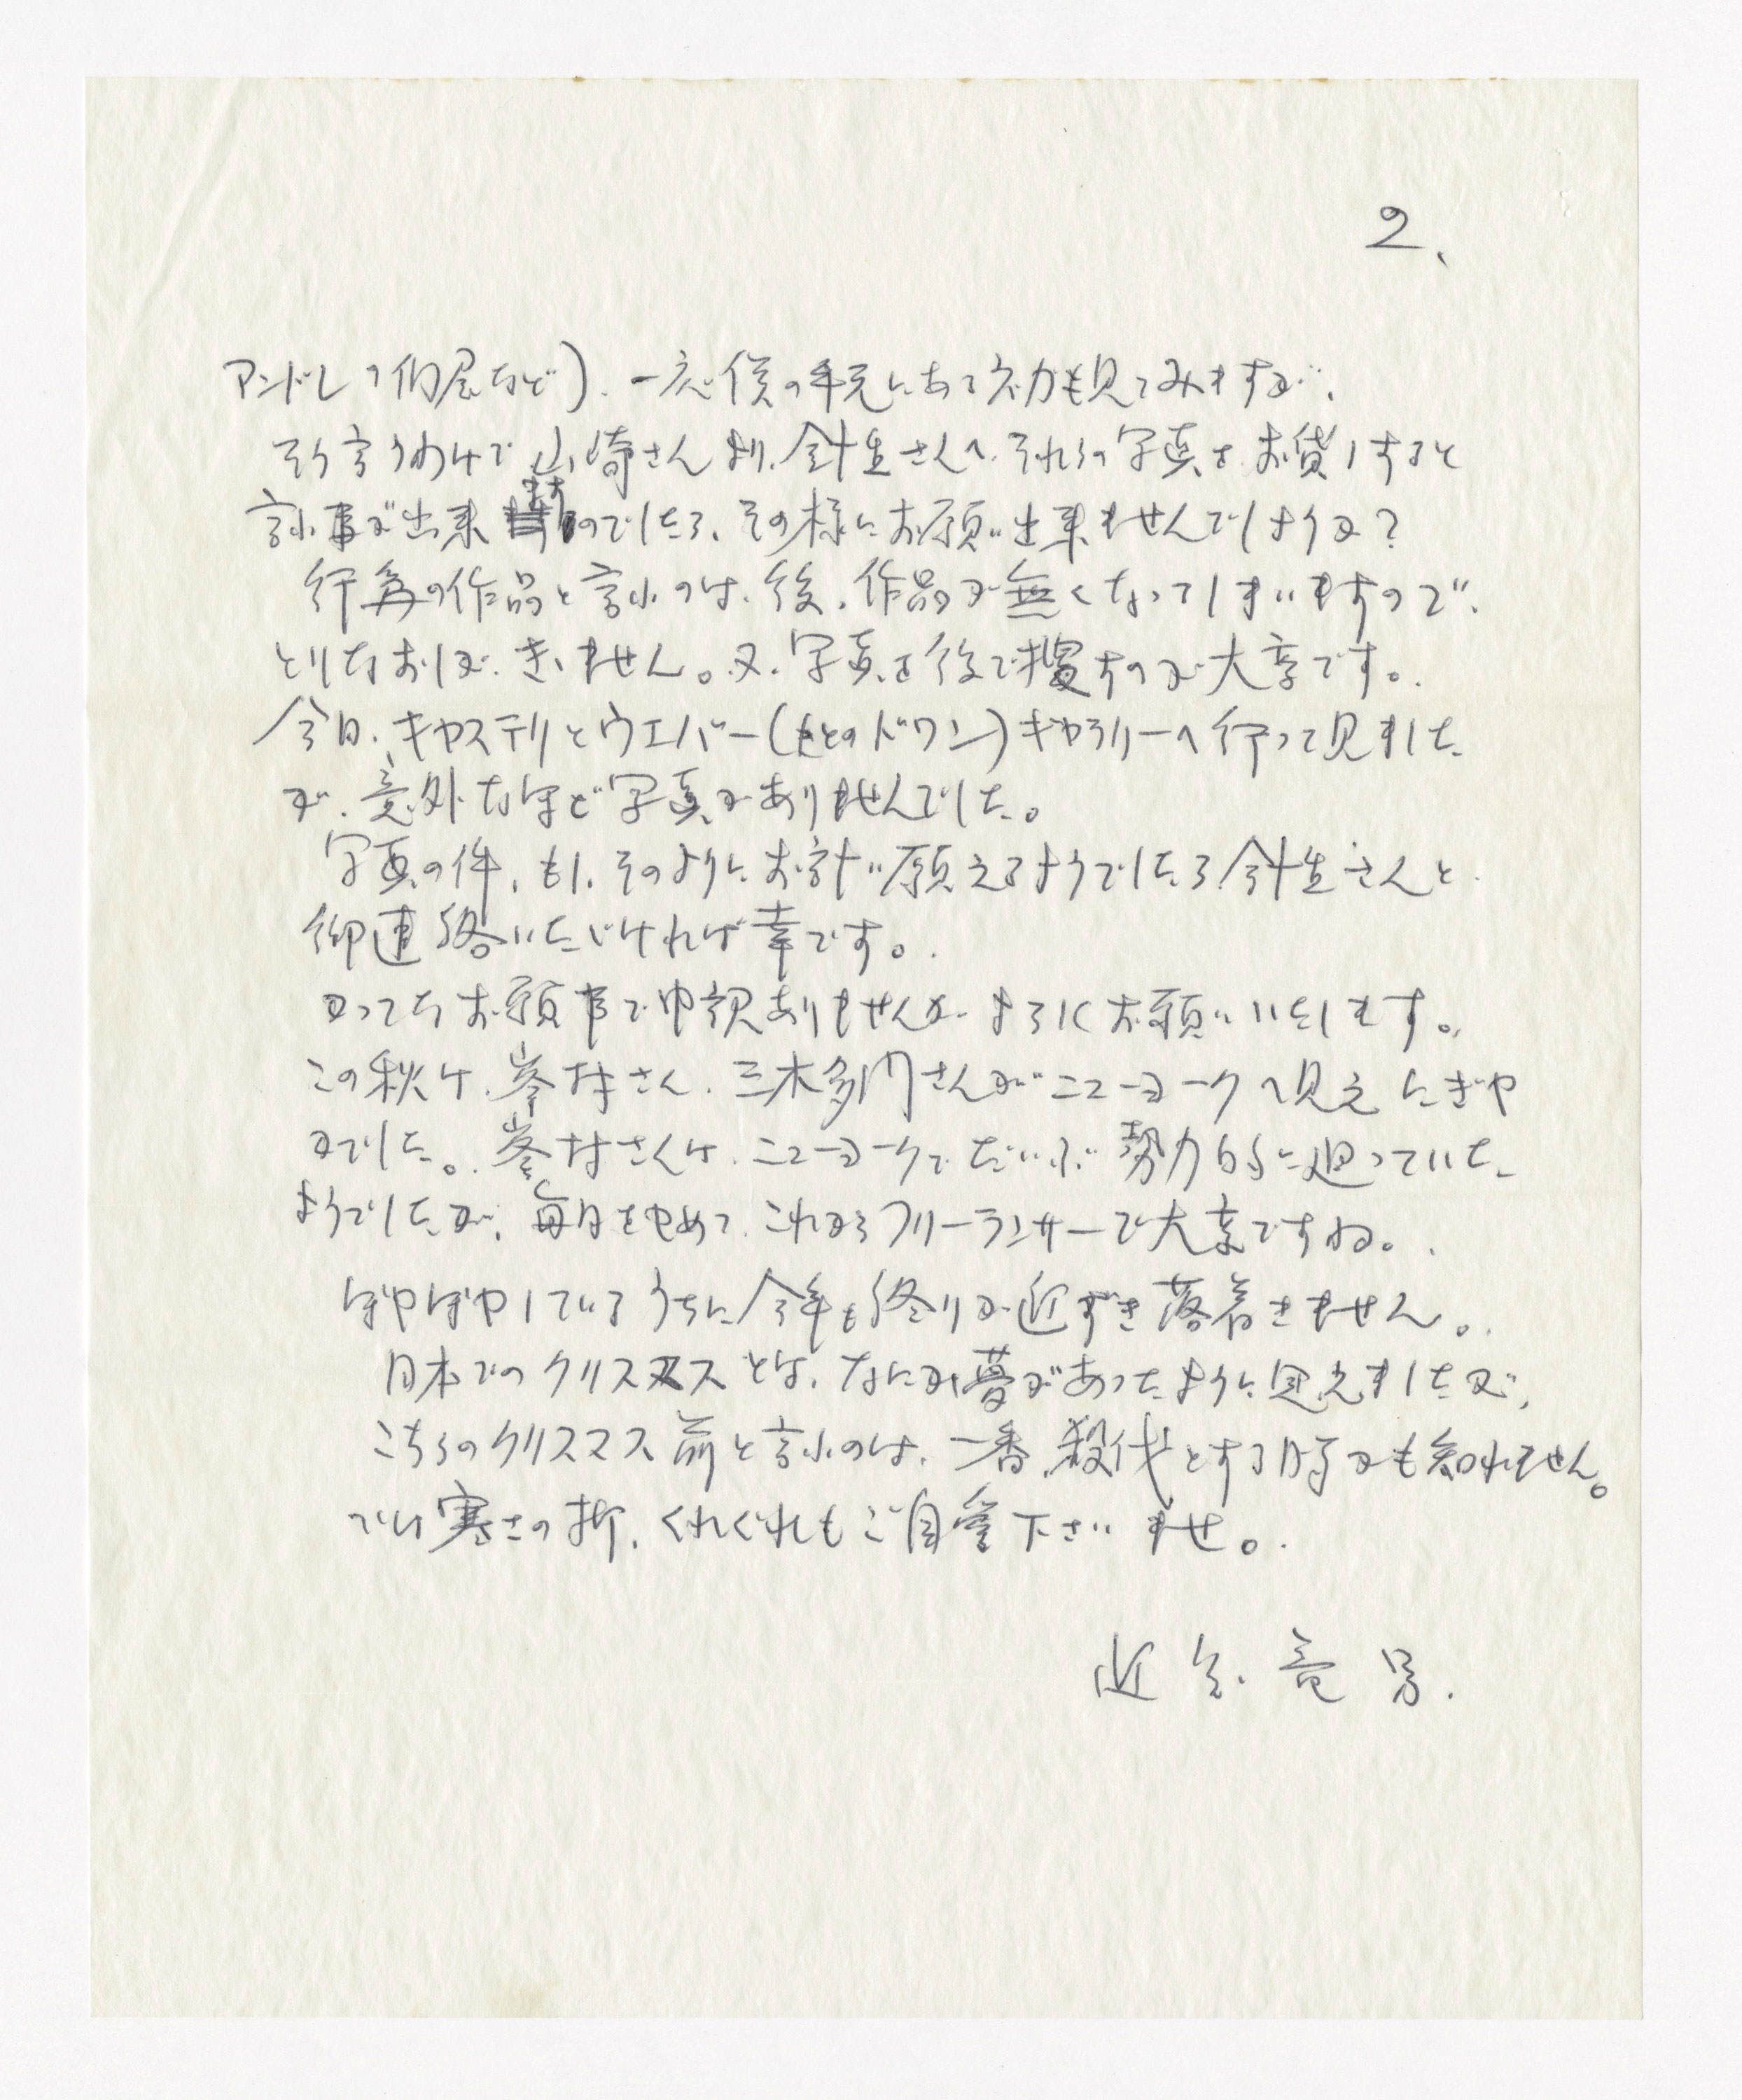 2、
アンドレの個展など)、一応僕の手元にあるネガも見てみますが、
そう言うわけで山崎さんより、針生さんへ、それらの写真を、お貸しすると
言ふ事が出来ますのでしたら、その様にお願い出来ませんでしょうか?
行為の作品と言ふのは、後、作品が無くなってしまいますので、
とりなおしが、きゝません。又、写真を後で捜すのが大変です。
今日、キャステリとウエバー(もとのドワン)ギャラリーへ行って見ました
が、意外なほど写真がありませんでした。
写真の件、もし、そのようにお計い願えるようでしたら針生さんと
御連絡いたゞければ幸です。
かってなお願事で申訳ありませんが、よろしくお願いいたします。
この秋は、峯村さん、三木多門さんがニューヨークへ見え にぎや
かでした。峯村さんは、ニューヨークで だいぶ 勢力的に廻っていた
ようでしたが、毎日をやめて、これからフリーランサーで大変ですね。
ぼやぼやしているうちに今年も終りが近ずき落着きません。
日本でのクリスマスとは、なにか夢があったように思えましたが、
こちらのクリスマス前と言ふのは、一番、殺伐とする時かも知れません。
では寒さの折、くれぐれもご自愛下さいませ。
近藤竜男